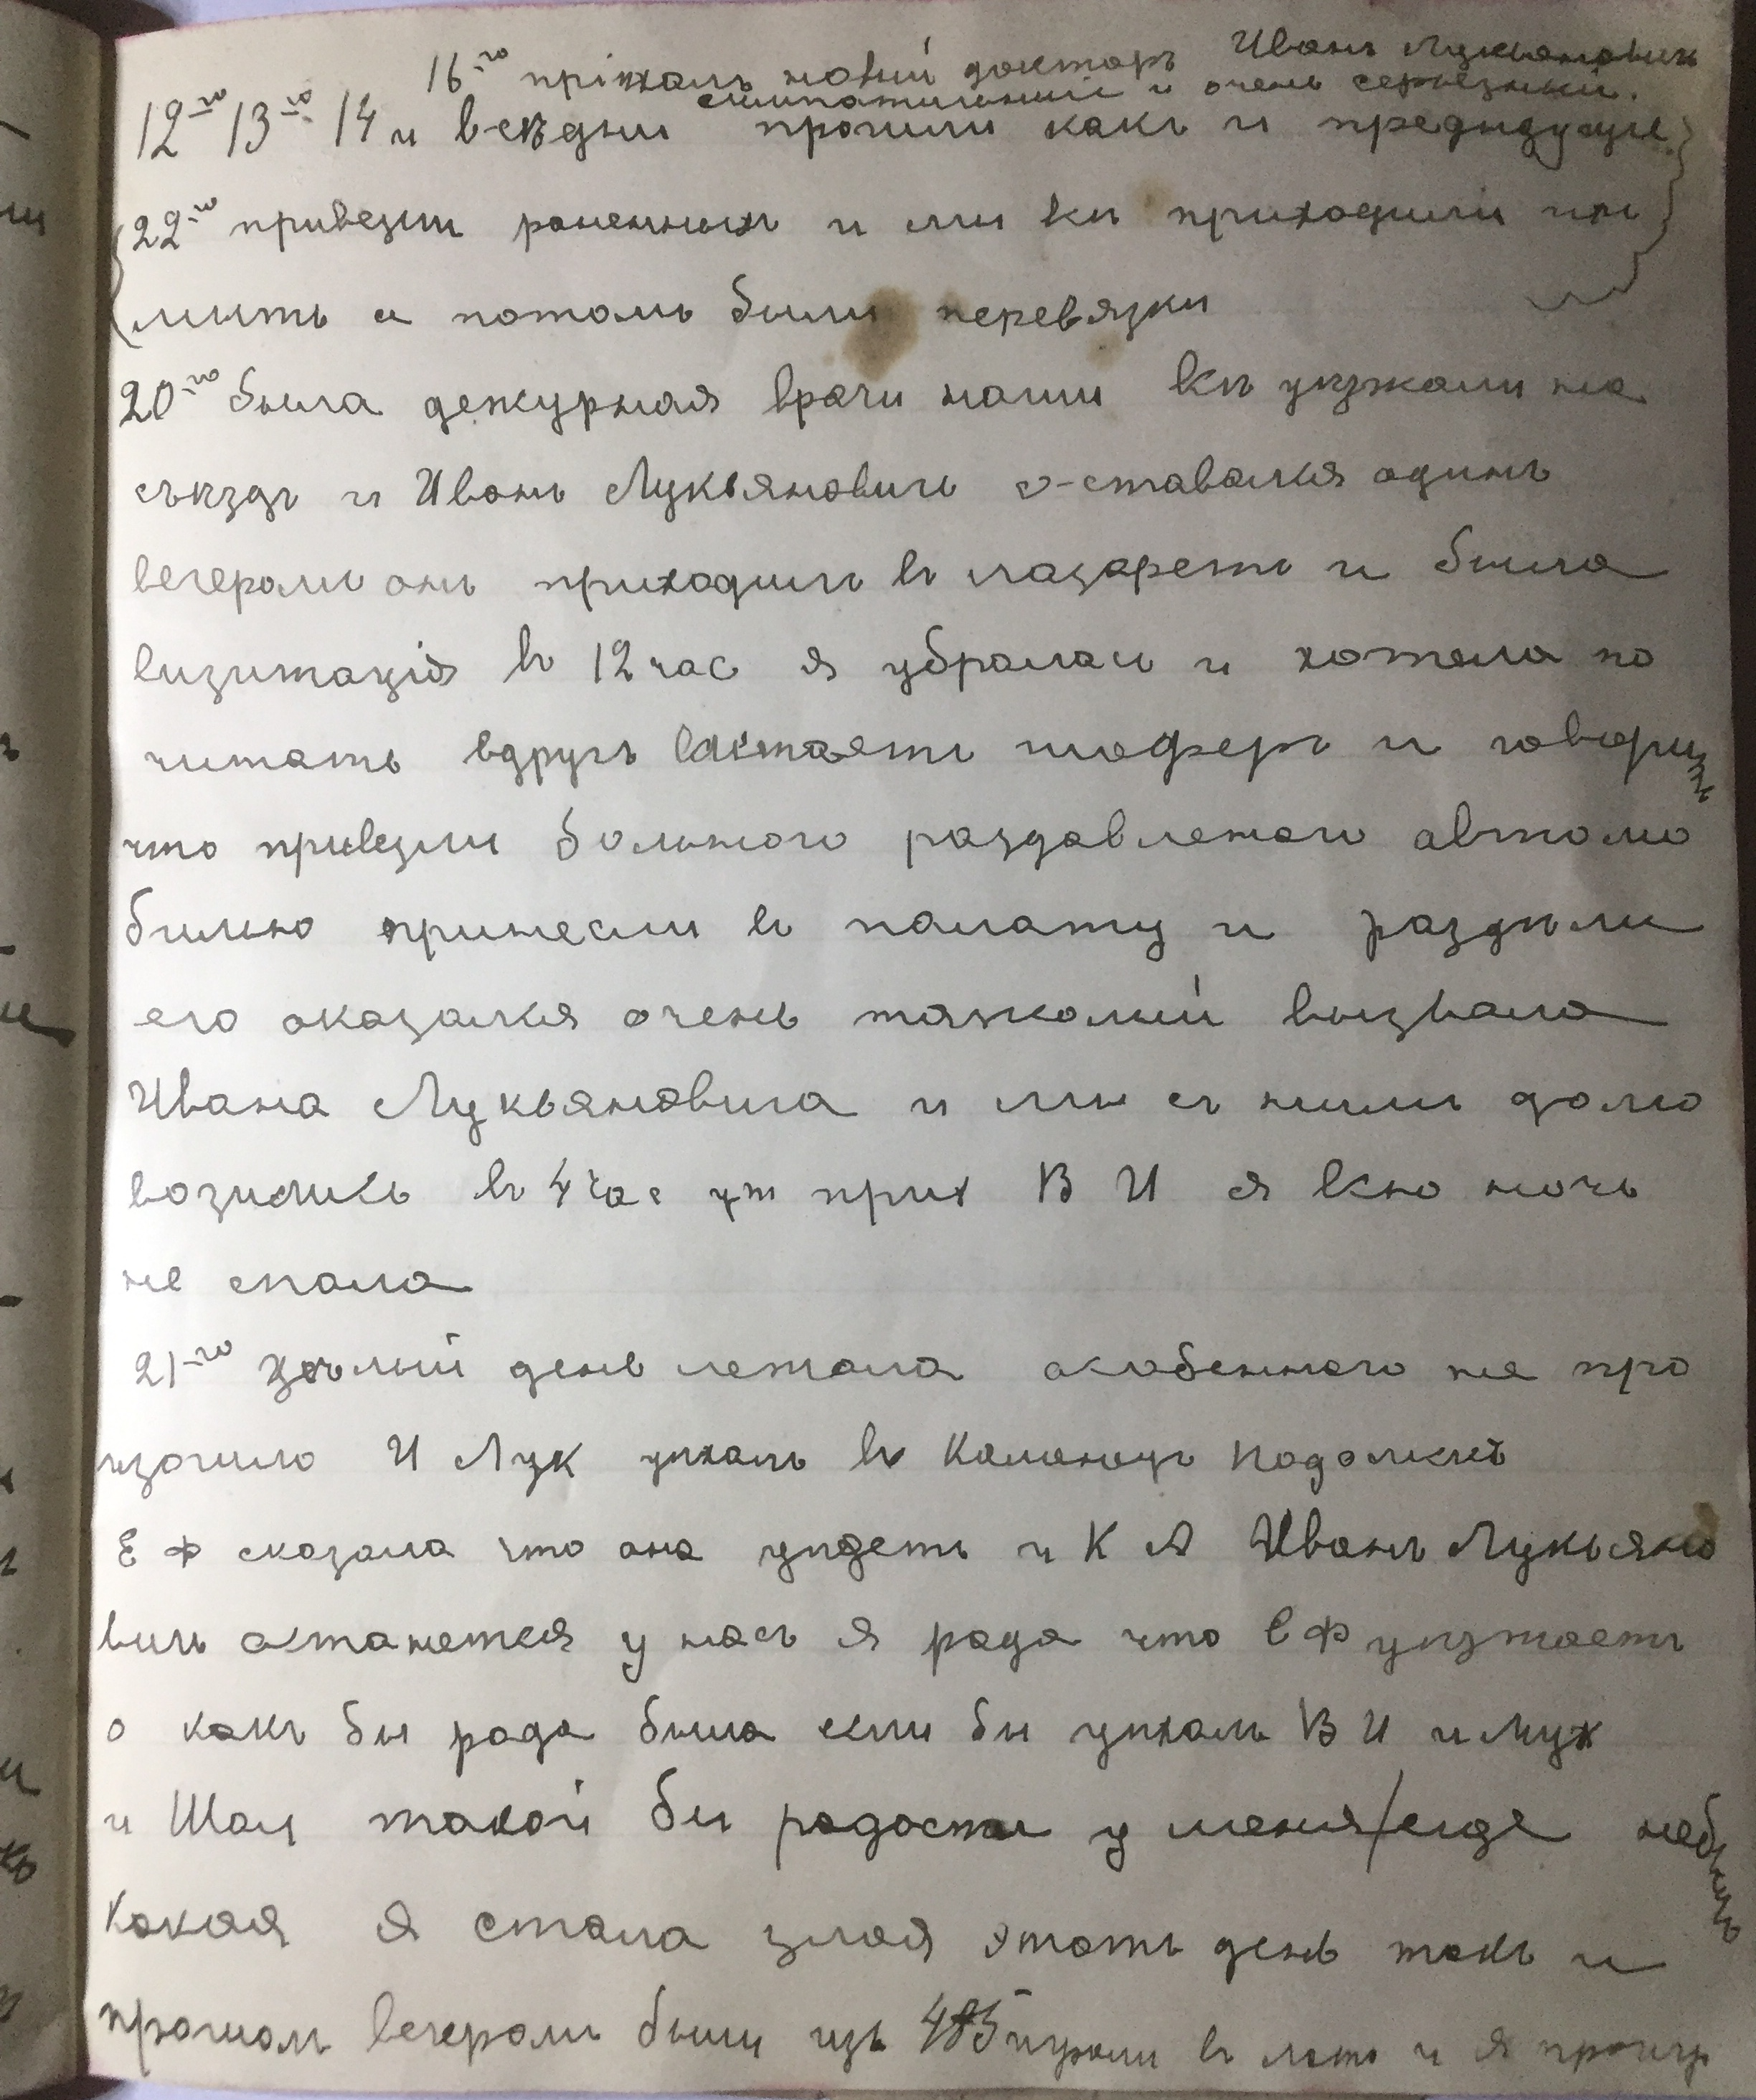 16-го пріѣхалъ новый докторъ Иванъ Лукьяновичъ
симпатичный и очень серьезный.
12-го 13-го 14 и всѣ дни прошли какъ и предыдущіе
22-го привезли раненныхъ и мы всѣ приходили ихъ
мыть а потомъ были перевязки
20-го была дежурная врачи наши всѣ уѣзжали на
съѣздъ и Иванъ Лукьяновичъ оставался одинъ
вечеромъ онъ приходилъ въ лазаретъ и была
визитація въ 12 час я убралась и хотела по
читать вдругъ шоферъ и говоритъ
что привезли больного раздавленого автомо
билью принесли въ палату и раздѣли
его оказался очень тяжолый вызвала
Ивана Лукьяновича и мы съ нимъ долго
возились въ 4 час ут прих В И я всю ночь
не спала
21-го цѣлый день лежала особенного не про
изошло И Лук уѣхалъ въ Каменецъ Подольскъ
Е Ф сказала что она уѣдетъ и К А Иванъ Лукьяно
вичъ останется у насъ я рада что Е Ф уѣзжаетъ
о какъ бы рада была если бы уѣхалъ В И и Мух
и Шал такой бы радости у меня/еще небылъ
Какая я стала злая этотъ день такъ и
прошолъ вечеромъ были изъ играли въ лото и я проигр